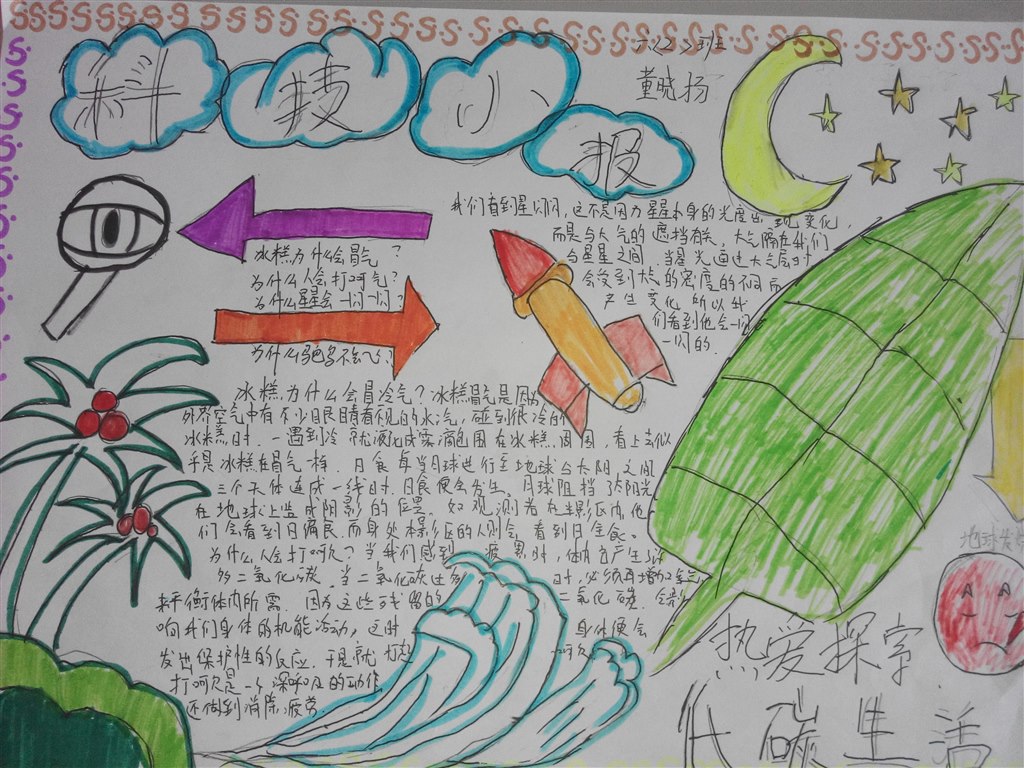 科技小报
六(2)班
董晓扬
我们看到星闪闪,这不是因为星星本身的光度出现变化,
而是与大气的遮挡有关,大气隔在我们
与星星之间,当星光通过大气层时
会受到大的密度的不同而
产生变化所以我
们看到他会一闪
一闪的.
冰糕为什么会冒气?
为什么人会打呵气?
为什么星会一闪一闪?
为什么鸵鸟不会飞?
冰糕为什么会冒冷气?冰糕冒气是因为
外界空气中有不少目眼睛看不见的水汽,碰到很冷的
冰糕时.一遇到冷就液化成雾滴包围在冰糕周围,看上去似
乎是冰糕在冒气一样.日食每当月球进行至地球与太阳之间
三个天体连成一线时.日食便会发生。月球阻挡了太阳光
在地球上造成阴影的位置。如观测者在半影区内他
们会看到日偏食.而身处本影区的人则会看到日全食。
为什么人会打呵欠?当我们感到疲累时,体内会产生许
多二氧化碳.当二氧化碳过多时,必须再增加氧气
来平衡体内所需.因为这些残留的二氧化碳.会影
响我们身体的机能活动,这时身体便会
发出保护性的反应.于是就打起呵欠
打呵欠是一个深呼吸的动作
还做到消除疲劳.
地球发烧
热爱探索
低碳生活